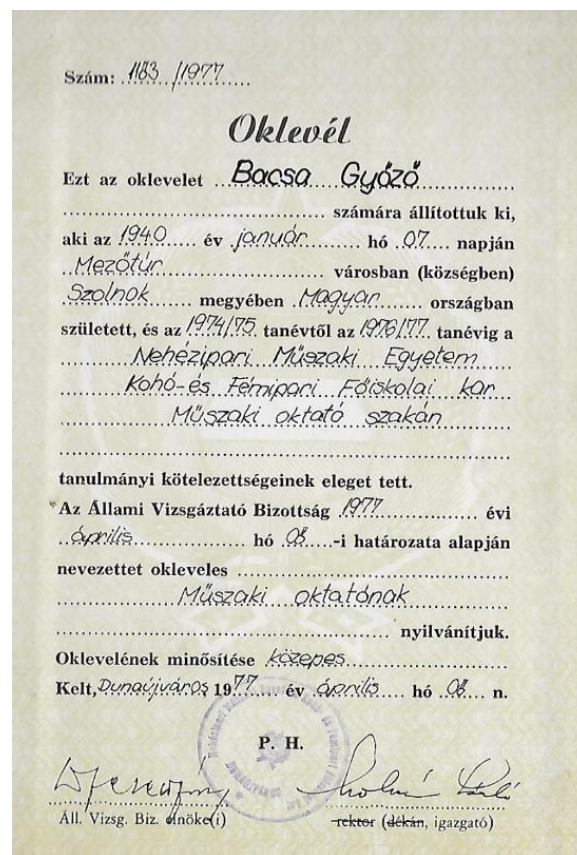 Szám: 1183/1977
Oklevél
Ezt az oklevelet Bacsa Győző
számára állítottuk ki,
aki az 1940 év január hó 07 napján
Mezőtúr városban (községben)
Szolnok megyében Magyar országban
született, és az 1974/75 tanévtől az 1976/77 tanévig a
Nehézipari Műszaki Egyetem
Kohó-és Fémipari Főiskolai kar
Műszaki oktató szakán
tanulmányi kötelezettségeinek eleget tett.
Az Állami Vizsgáztató Bizottság 1977 évi
április hó 08-i határozata alapján
nevezettet okleveles
Műszaki oktatónak
nyilvánítjuk.
Oklevelének minősítése közepes
Kelt, Dunaújváros 1977 év április hó 08 n.
P. H.
Áll. Vizsg. Biz. elnöke(i) rektor (dékán, igazgató)